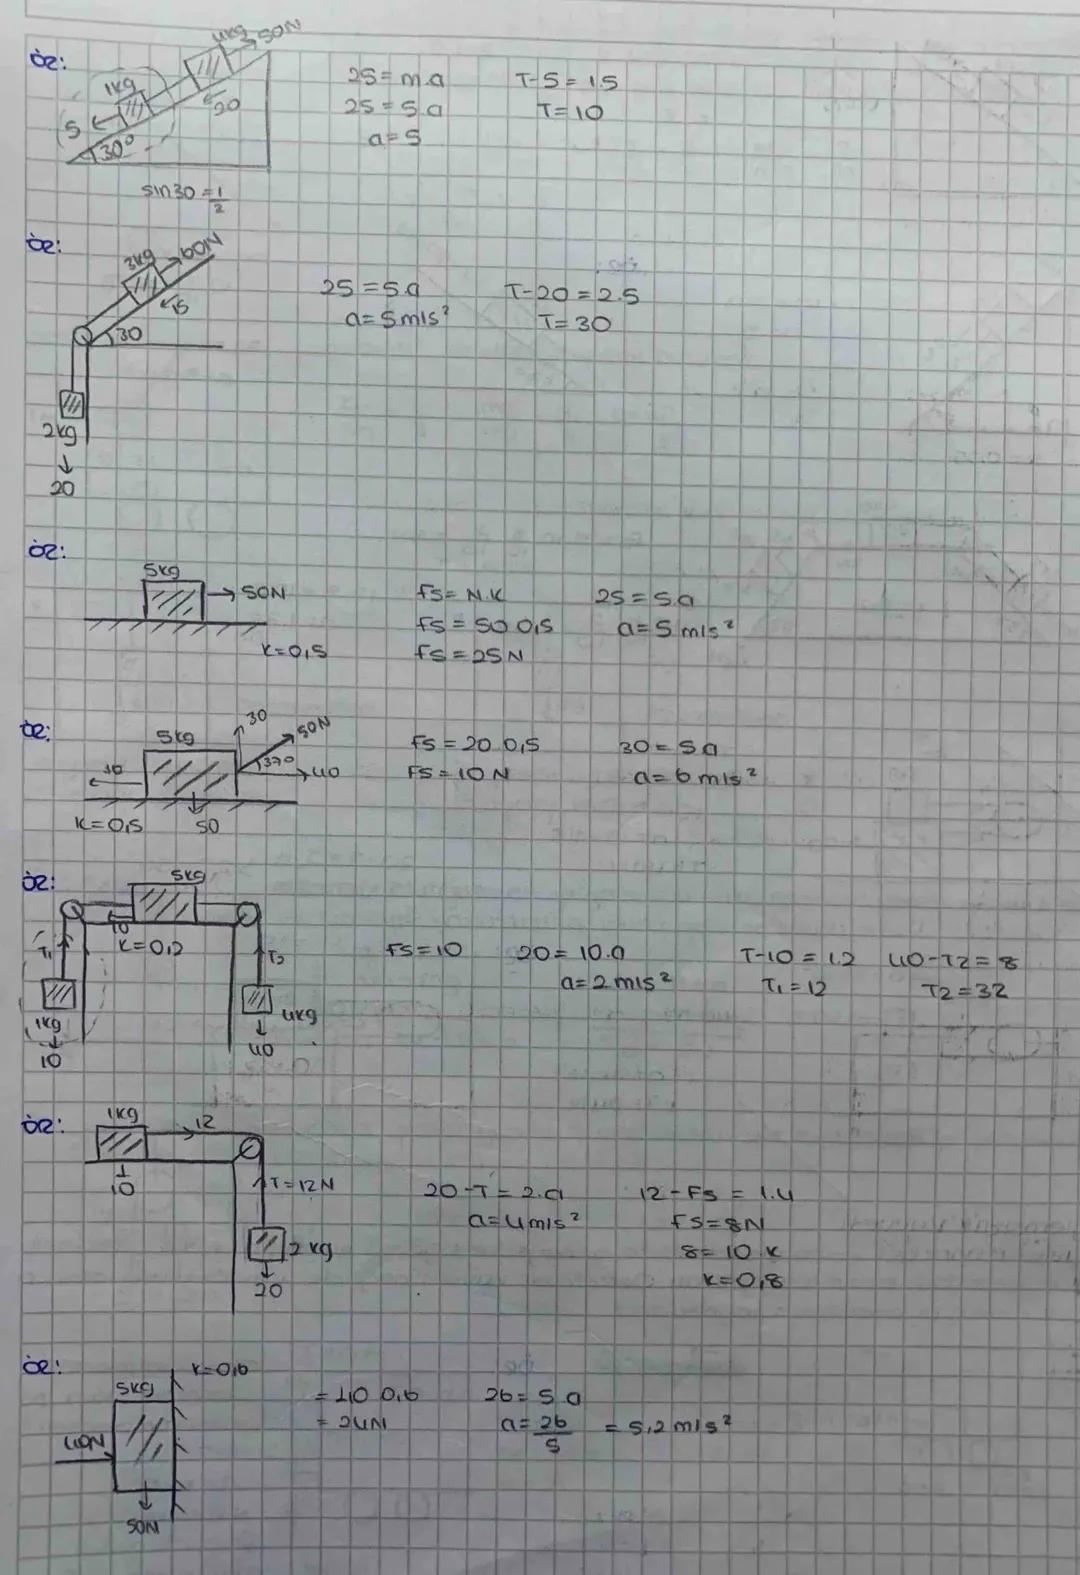 Ör:
4kg
50N
1kg
20
5
30°
sin30 = 1/2
25 = m.a
25 = 5.a
a = 5
T-5 = 1.5
T = 10
Ör:
3kg
60N
15
30
2kg
20
25 = 5.a
a = 5 m/s²
T-20 = 2.5
T = 30
Ör:
5kg
50N
k=0,5
fs = N.k
fs = 50.0,5
fs = 25N
25 = 5.a
a = 5 m/s²
Ör:
5kg
30
50N
37°
40
10
k=0,5
50
fs = 20.0,5
fs = 10N
30 = 5.a
a = 6 m/s²
Ör:
5kg
10
k=0,2
T1
T2
1kg
10
4kg
40
fs = 10
20 = 10.a
a = 2 m/s²
T-10 = 1.2
T1 = 12
40-T2 = 8
T2 = 32
Ör:
1kg
12
10
T = 12N
2 kg
20
20-T = 2.a
a = 4 m/s²
12-Fs = 1.4
fs = 8N
8 = 10.k
k = 0,8
Ör:
k=0,6
5kg
40N
50N
= 40.0,6
= 24N
26 = 5.a
a = 26/5 = 5,2 m/s²